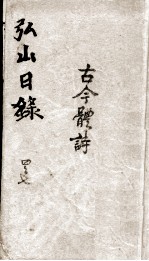 弘山日錄
古今體詩